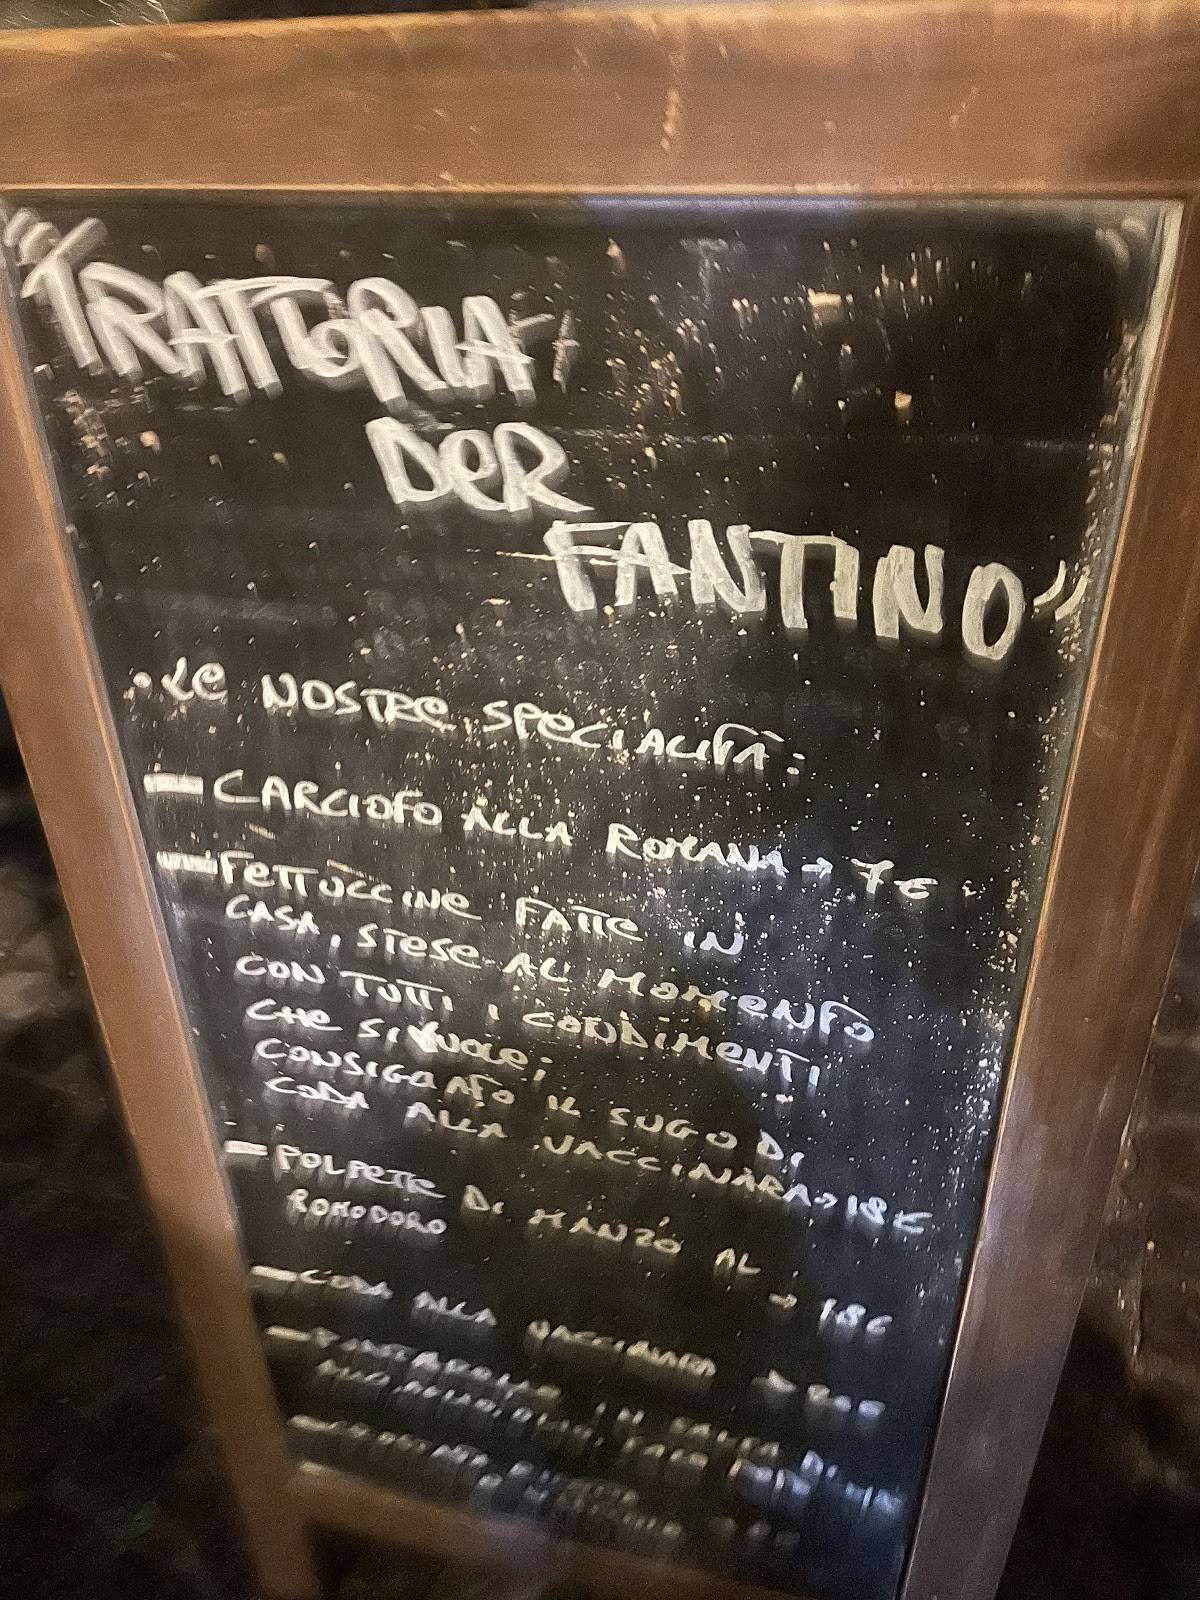 "TRATTORIA
DER
FANTINO"
• Le NOSTRE SPECIALITÀ:
- CARCIOFO ALLA ROMANA → 7€
- FETTUCCINE FATTE IN
CASA, STESE AL MOMENTO
CON TUTTI I CONDIMENTI
CHE SI VUOLE;
CONSIGLIATO IL SUGO DI
CODA ALLA VACCINARA → 18€
- POLPETTE DI MANZO AL
POMODORO → 18€
- CODA ALLA VACCINARA →
IN SALSA DI